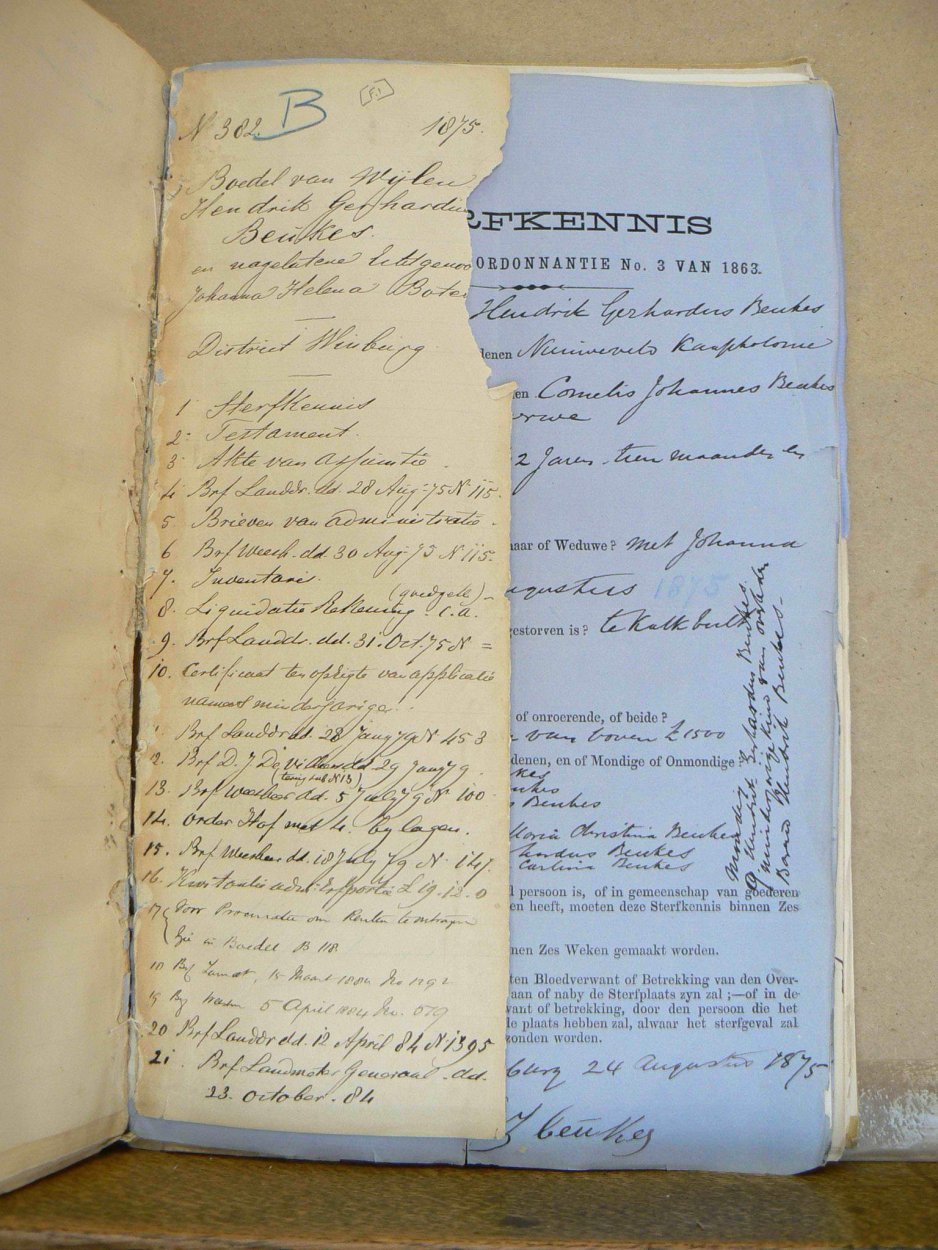 No 382 B 1875.
Boedel van Wylen
Hendrik Gerhardu
Beukes.
en nagelatene Echtgenoo
Johanna Helena Botes
District Winburg.
1 Sterfkennis
2 Testament.
3 Akte van assumtie
4 Brf Landdr. dd. 28 Aug 75 N 115.
5 Brieven van administratie.
6 Brf Weesh. dd. 30 Aug 75 N. 115.
7. Inventaris.
8. Liquidatie Rekening. c.a. (goedgek)
9. Brf Landdr. dd. 31. Oct. 75 N =
10. Certificaat ten opzigte van applicatie
namens minderjarige.
Brf Landdr dd. 28 Jany 79 N 453
2. Brf D. J. De Villiers dd 29 Jany 79.
(terug sub N 13)
13. Brf Weesheer dd. 5 July 79 N 100
14. order Hof met 4. bylagen.
15. Brf Weesheer dd. 18 July 79 N. 147.
16. Kwitantie Erfportie £ 19.12.0
17 Voor Procuratie om Renten te ontvangen
Zie in Boedel B 118.
18 Brf 15 Maart 1884 No 1292
19 Brf 5 April 1884 No. 579
20 Brf Landdr dd. 12 April 84 N 1395
21. Brf Landmeter Generaal dd.
23. October. 84
RFKENNIS
ORDONNANTIE No. 3 VAN 1863.
Hendrik Gerhardus Beukes
denen Nieuweveld
en Cornelis Johannes Beukes
2 Jaren tien maanden en
naar of Weduwe? met Johanna
ugustus 1875
gestorven is? te Kalkbult
of onroerende, of beide?
van boven £1500
denen, en of Mondige of Onmondige
kes
eukes
s Beukes
Maria Christina Beukes
hardus Beukes
Carlina Beukes
Mondig
9. Hendrik Gerhardus Beukes.
minderjarige kind van overleden
Barend Hendrik Beukes.
l persoon is, of in gemeenschap van goederen
en heeft, moeten deze Sterfkennis binnen Zes
nen Zes Weken gemaakt worden.
ten Bloedverwant of Betrekking van den Over-
aan of naby de Sterfplaats zyn zal ;—of in de-
vant of betrekking, door den persoon die het
de plaats hebben zal, alwaar het sterfgeval zal
zonden worden.
burg 24 Augustus 1875
Beukes